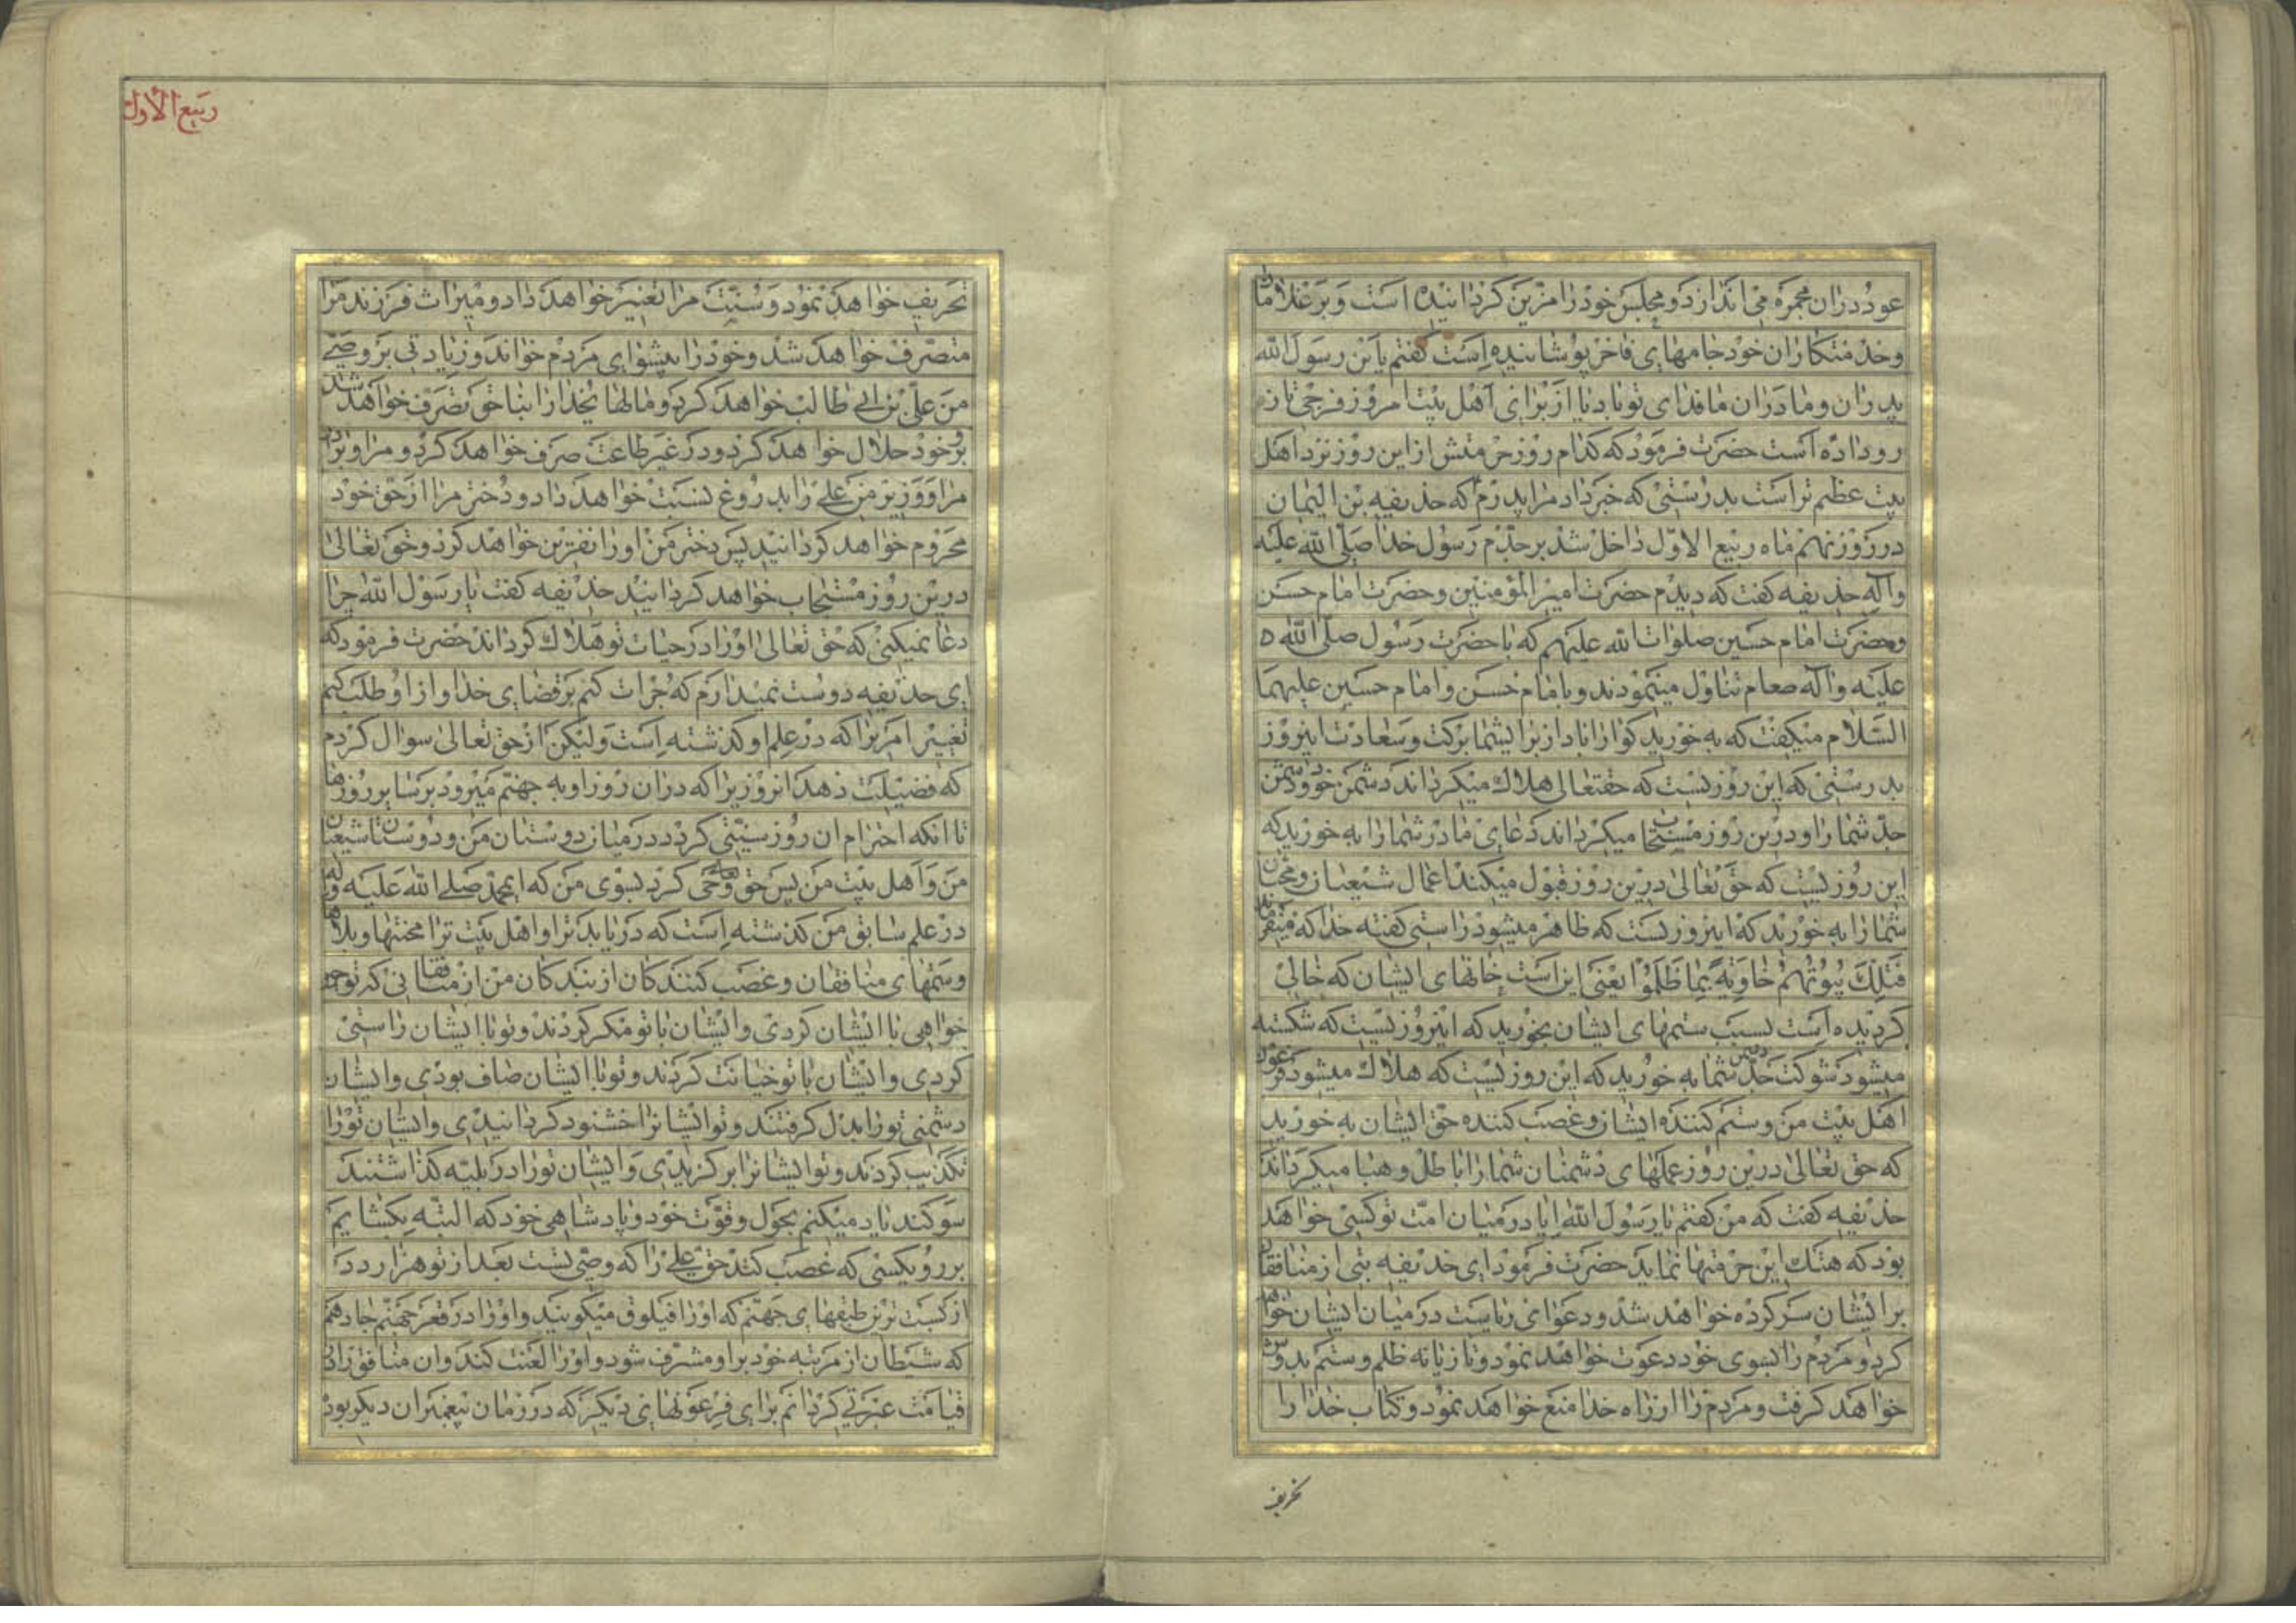 عود دران مجمره می اندازد و مجلس خود را مزین کردانیده است و بر غلامان
و خدمتکاران خود جامهای فاخر پوشانیده است کفتم یابن رسول الله
پدران و مادران ما فدای تو باد ایا از برای اهل بیت امروز فرحی تازه
رو داده است حضرت فرمود که کدام روز حرمتش از این روز نزد اهل
بیت عظیم تر است بدرستی که خبر داد مرا پدرم که حذیفه بن الیمان
در روز نهم ماه ربیع الاول داخل شد بر جدم رسول خدا صلی الله علیه
و آله حذیفه کفت که دیدم حضرت امیر المؤمنین و حضرت امام حسن
و حضرت امام حسین صلوات الله علیهم که با حضرت رسول صلی الله
علیه و آله طعام تناول مینمودند و با امام حسن و امام حسین علیهما
السلام میکفت که به خورید کوارا باد از برای شما برکت و سعادت اینروز
بدرستی که این روزیست که حقتعالی هلاک میکرداند دشمن خود و دشمن
جد شما را و درین روز مستجاب میکرداند دعای مادر شما را به خورید که
این روزیست که حق تعالی درین روز قبول میکند اعمال شیعیان و محبان
شما را به خورید که اینروزیست که ظاهر میشود راستی کفته خدا که میفرماید
فتلک بیوتهم خاویة بما ظلموا یعنی این است خانهای ایشان که خالی
کردیده است بسبب ستمهای ایشان بخورید که اینروزیست که شکسته
میشود شوکت دشمن جد شما به خورید که این روزیست که هلاک میشود فرعون
اهل بیت من و ستم کننده ایشان و غصب کننده حق ایشان به خورید
که حق تعالی درین روز عملهای دشمنان شما را باطل و هبا میکرداند
حذیفه کفت که من کفتم یا رسول الله ایا در میان امت تو کسی خواهد
بود که هتک این حرمتها نماید حضرت فرمود ای حذیفه بتی از منافقان
بر ایشان سرکرده خواهد شد و دعوای ریاست در میان ایشان خواهد
کرد و مردم را بسوی خود دعوت خواهد نمود و تازیانه ظلم و ستم بدوش
خواهد کرفت و مردم را از راه خدا منع خواهد نمود و کتاب خدا را
تحریف
ربیع الاول
تحریف خواهد نمود و سنت مرا تغییر خواهد داد و میراث فرزند مرا
متصرف خواهد شد و خود را پیشوای مردم خواند و زیادتی بر وصی
من علی بن ابی طالب خواهد کرد و مالهای خدا را بناحق تصرف خواهد شد
بر خود حلال خواهد کرد و در غیر طاعت صرف خواهد کرد و مرا و برادر
مرا و وزیر من علی را بدروغ نسبت خواهد داد و دختر مرا از حق خود
محروم خواهد کردانید پس دختر من او را نفرین خواهد کرد و حق تعالی
درین روز مستجاب خواهد کردانید حذیفه کفت یا رسول الله چرا
دعا نمیکنی که حق تعالی او را در حیات تو هلاک کرداند حضرت فرمود که
ای حذیفه دوست نمیدارم که جرات کنم بر قضای خدا و از او طلب کنم
تغییر امریرا که در علم او کذشته است ولیکن از حق تعالی سوال کردم
که فضیلت دهد انروزیرا که دران روز او به جهنم میرود بر سایر روزها
تا انکه احترام ان روز سنتی کردد در میان دوستان من و دوستان شیعیان
من و اهل بیت من پس حق تعالی وحی کرد بسوی من که ای محمد صلی الله علیه و آله
در علم سابق من کذشته است که دریابد ترا و اهل بیت ترا محنتها و بلاها
و ستمهای منافقان و غصب کنندکان از بندکان من از منافقانی که تو خیر
خواهی با ایشان کردی و ایشان با تو مکر کردند و تو با ایشان راستی
کردی و ایشان با تو خیانت کردند و تو با ایشان صاف بودی و ایشان
دشمنی تو را بدل کرفتند و تو ایشانرا خشنود کردانیدی و ایشان تو را
تکذیب کردند و تو ایشانرا برکزیدی و ایشان تو را در بلیه کذاشتند
سوکند یاد میکنم بحول و قوت خود و پادشاهی خود که البته بکشایم
بر روی کسی که غصب کند حق علی را که وصی تست بعد از تو هزار در
از پست ترین طبقهای جهنم که او را فیلوق میکویند و او را در قعر جهنم جا دهم
که شیطان از مرتبه خود بر او مشرف شود و او را لعنت کند و ان منافق را در
قیامت عبرتی کردانم برای فرعونهای دیکر که در زمان پیغمبران دیکر بود